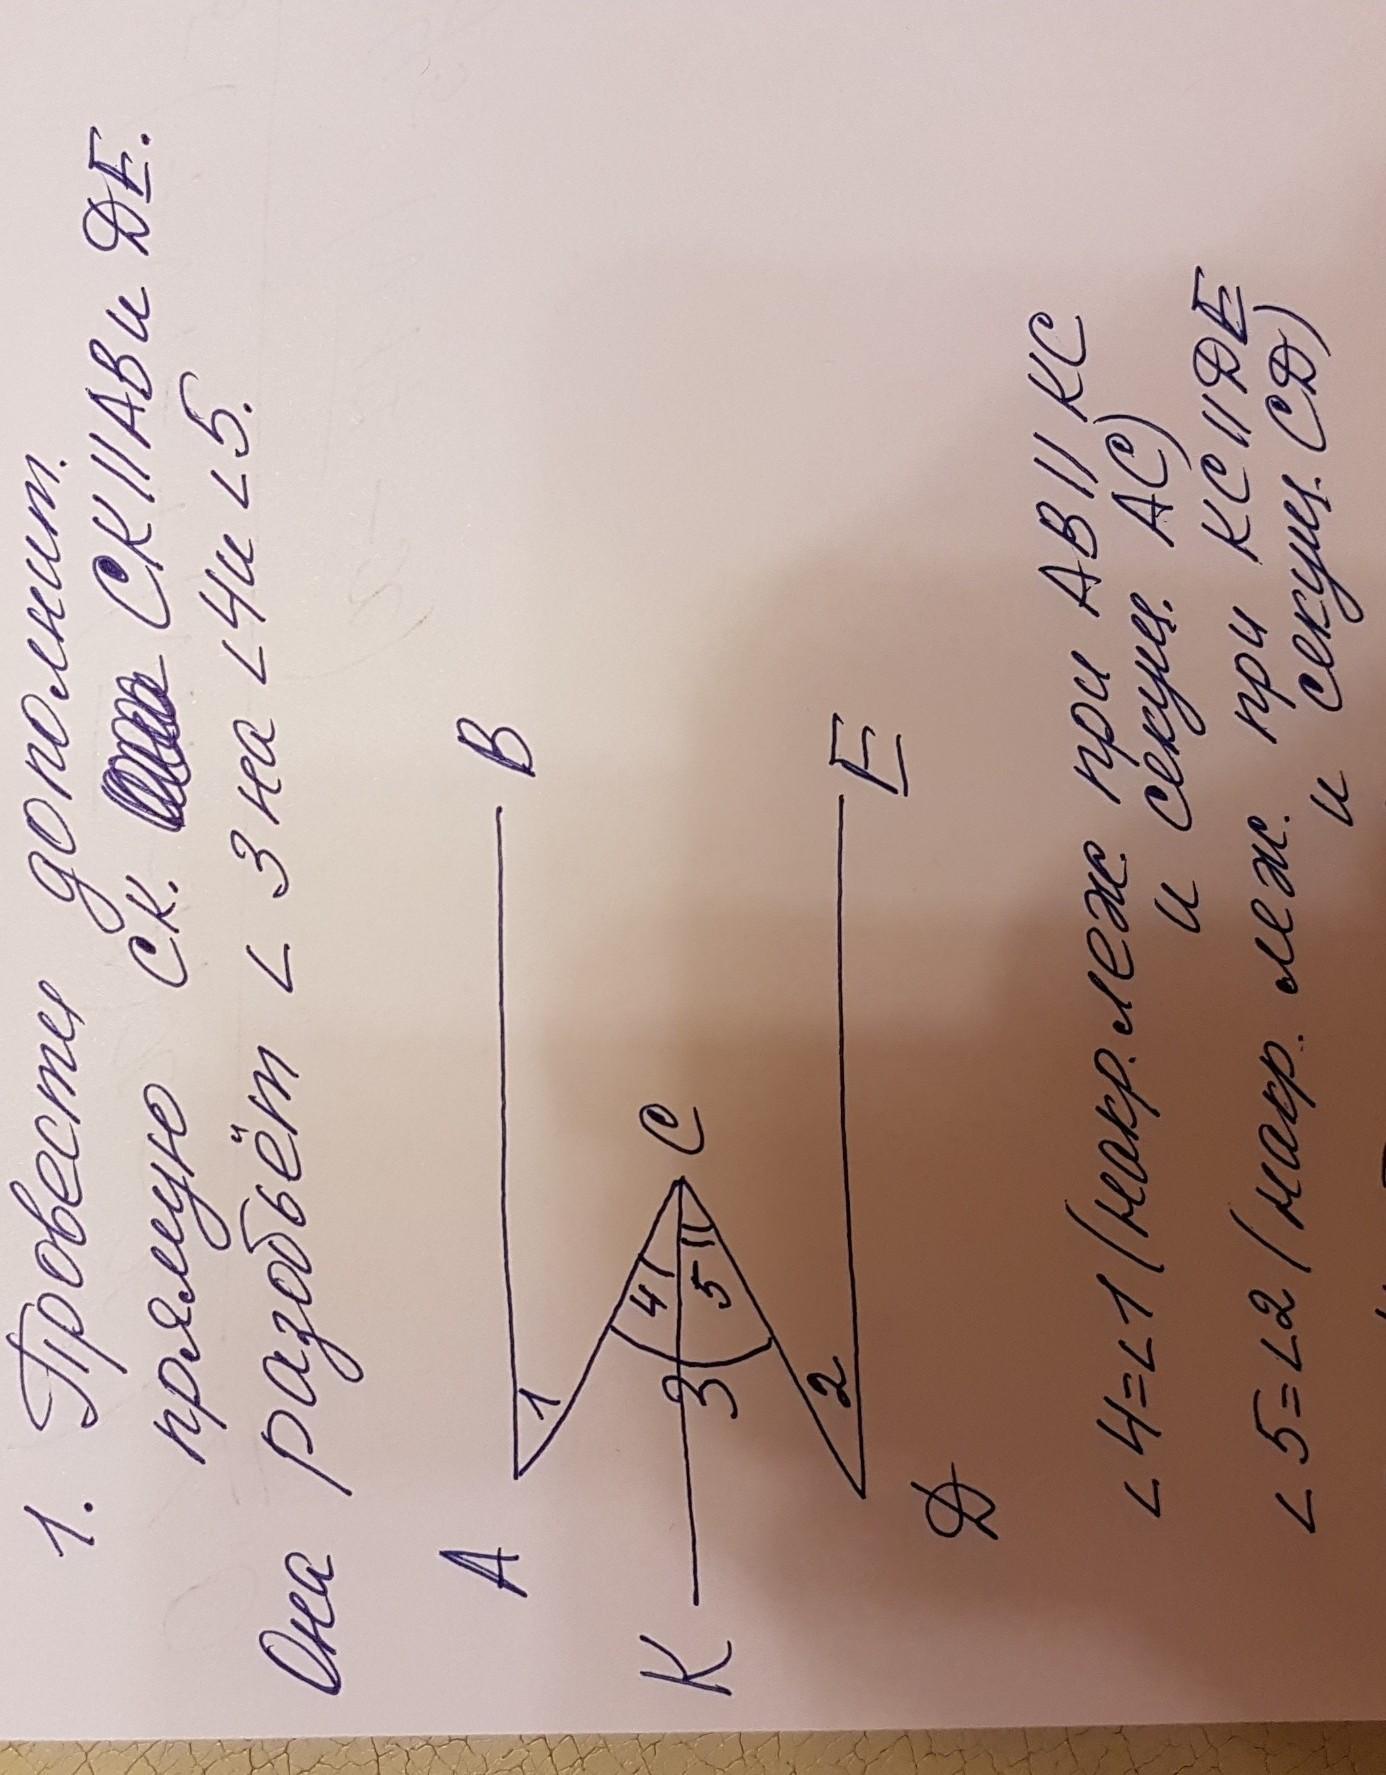 1. Провести дополнит.
прямую ск. СК||АВ и DE.
Она разобьёт ∠3 на ∠4 и ∠5.
A
B
1
K
3
4
5
C
2
D
E
∠4=∠1 (накр. леж при AB || KC
и секущ. AC)
∠5=∠2 (накр. леж. при KC || DE
и секущ. CD)